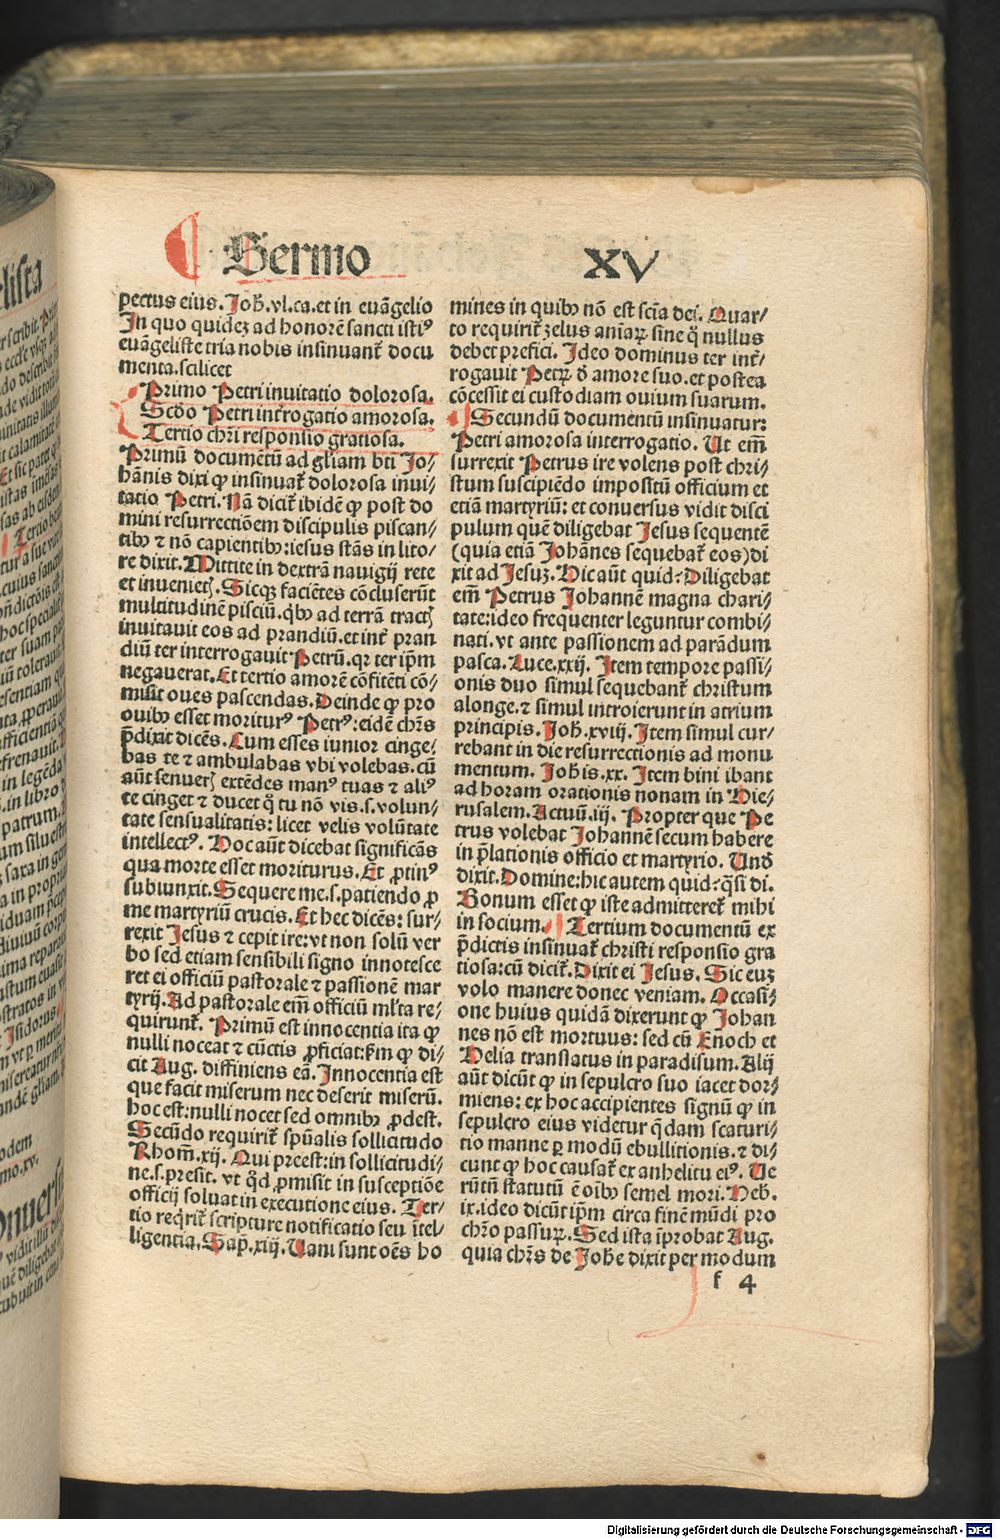 Sermo XV
pectus eius. Joh̄.vl.ca.et in euāgelio
In quo quidez ad honorē sancti istiꝰ
euāgeliste tria nobis insinuant᷑ docu
menta.scilicet
Primo Petri inuitatio dolorosa.
Scd̄o Petri int̄rogatio amorosa.
Tertio chr̄i responsio gratiosa.
Primū documētū ad gl̄iam bt̄i Jo⸗
hānis dixi ꝙ insinuat᷑ dolorosa inui⸗
tatio Petri. Nā dicit᷑ ibidē ꝙ post do
mini resurrectiōem discipulis piscan⸗
tibꝰ ⁊ nō capientibꝰ:iesus stās in lito⸗
re dixit. Mittite in dextrā nauigij rete
et inuenietꝭ. Sicqꝫ faciētes cōcluserūt
multitudinē pisciū.qb̄ꝰ ad terrā tractꝭ
inuitauit eos ad prandiū.et int̄ pran
diū ter interrogauit Petrū.qꝛ ter ip̄m
negauerat. Et tertio amorē cōfitēti cō⸗
misit oues pascendas. Deinde ꝙ pro
ouibꝰ esset moriturꝰ Petrꝰ:eidē chr̄s
p̄dixit dicēs. Cum esses iunior cinge⸗
bas te ⁊ ambulabas vbi volebas. cū
aūt senuerꝭ extēdes manꝰ tuas ⁊ aliꝰ
te cinget ⁊ ducet q̄ tu nō vis.s.volun⸗
tate sensualitatis: licet velis volūtate
intellectꝰ. Hoc aūt dicebat significās
qua morte esset moriturus. Et ꝓtinꝰ
subiunxit. Sequere me.s.patiendo ꝓ
me martyriū crucis. Et hec dicēs: sur⸗
rexit Jesus ⁊ cepit ire:vt non solū ver
bo sed etiam sensibili signo innotesce
ret ei officiū pastorale ⁊ passionē mar
tyrij. Ad pastorale em̄ officiū ml̓ta re⸗
quirunt᷑. Primū est innocentia ita ꝙ
nulli noceat ⁊ cūctis ꝓficiat:km̄ ꝙ di⸗
cit Aug. diffiniens eā. Innocentia est
que facit miserum nec deserit miserū.
hoc est:nulli nocet sed omnibꝰ ꝓdest.
Secūdo requirit᷑ spūalis sollicitudo
Rhom̄.xij. Qui preest:in sollicitudi⸗
ne.s.presit. vt qd̄ ꝓmisit in susceptiōe
officij soluat in executione eius. Ter⸗
tio req̄rit᷑ scripture notificatio seu ītel⸗
ligentia. Sap̄.xiij. Uani sunt oēs ho
mines in quibꝰ nō est sc̄ia dei. Quar⸗
to requirit᷑ zelus aniaꝝ sine q̄ nullus
debet prefici. Ideo dominus ter int̄⸗
rogauit Petꝝ d̄ amore suo.et postea
cōcessit ei custodiam ouium suarum.
Secundū documentū insinuatur:
Petri amorosa interrogatio. Ut em̄
surrexit Petrus ire volens post chri⸗
stum suscipiēdo impositū officium et
etiā martyriū: et conuersus vidit disci
pulum quē diligebat Jesus sequentē
(quia etiā Johānes sequebat᷑ eos)di
xit ad Jesuꝫ. Hic aūt quid? Diligebat
em̄ Petrus Johannē magna chari⸗
tate:ideo frequenter leguntur combi⸗
nati. vt ante passionem ad parādum
pasca. Luce.xxij. Item tempore passi⸗
onis duo simul sequebant᷑ christum
alonge.⁊ simul introierunt in atrium
principis. Joh̄.xviij. Item simul cur⸗
rebant in die resurrectionis ad monu
mentum. Joh̄is.xx. Item bini ibant
ad horam orationis nonam in Hie⸗
rusalem. Actuū.iij. Propter que Pe
trus volebat Johannē secum habere
in p̄lationis officio et martyrio. Und̄
dixit. Domine:hic autem quid?q̄si di.
Bonum esset ꝙ iste admitteret᷑ mihi
in socium. Tertium documentū ex
p̄dictis insinuat᷑ christi responsio gra
tiosa:cū dicit᷑. Dixit ei Jesus. Sic euꝫ
volo manere donec veniam. Occasi⸗
one huius quidā dixerunt ꝙ Johan
nes nō est mortuus: sed cū Enoch et
Helia translatus in paradisum. Alij
aūt dicūt ꝙ in sepulcro suo iacet dor⸗
miens: ex hoc accipientes signū ꝙ in
sepulcro eius videtur q̄dam scaturi⸗
tio manne ꝑ modū ebullitionis. ⁊ di⸗
cunt ꝙ hoc causat᷑ ex anhelitu eiꝰ. Ue
rūtū statutū ē oībꝰ semel mori. Heb.
ix.ideo dicūt ip̄m circa finē mūdi pro
chr̄o passuꝝ. Sed ista īprobat Aug.
quia chr̄s de Joh̄e dixit per modum
f 4
Digitalisierung gefördert durch die Deutsche Forschungsgemeinschaft - DFG